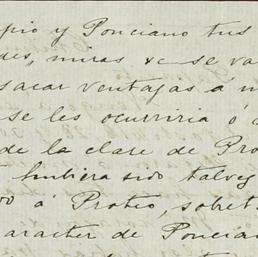 pio y Ponciano tus
des, miras &c se va
sacar ventajas á m
se les ocurriria ó a
de la clase de Pro
hubiera sido talvez
á Proteo, sobret
aracter de Poncian